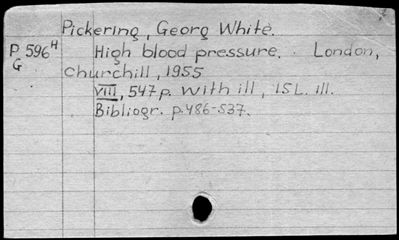 Pickering, Georg White.
P 596 H High blood pressure. London,
G Churchill, 1955
VIII, 547 p. with ill, 15 L. ill.
Bibliogr. p. 486-537.